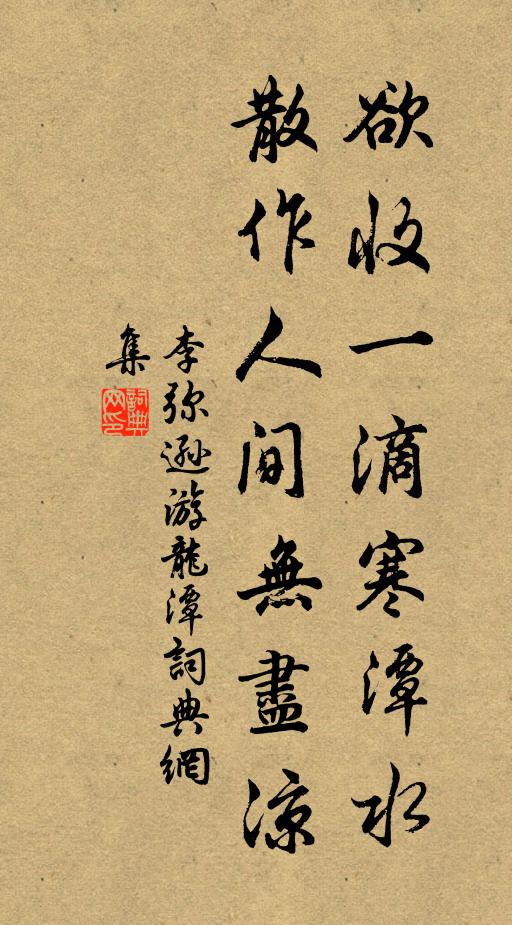 欲收一滴寒潭水
散作人间無盡凉
李弥遜游龍潭詞典網
集
詞典
网印